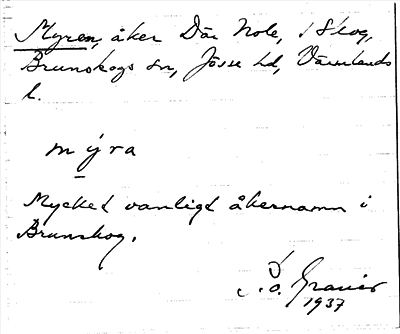 Myren, åker Där Nole, i Skog,
Brunskogs sn, Jösse hd, Värmlands
l.
mýra
Mycket vanligt åkernamn i
Brunskog.
1937